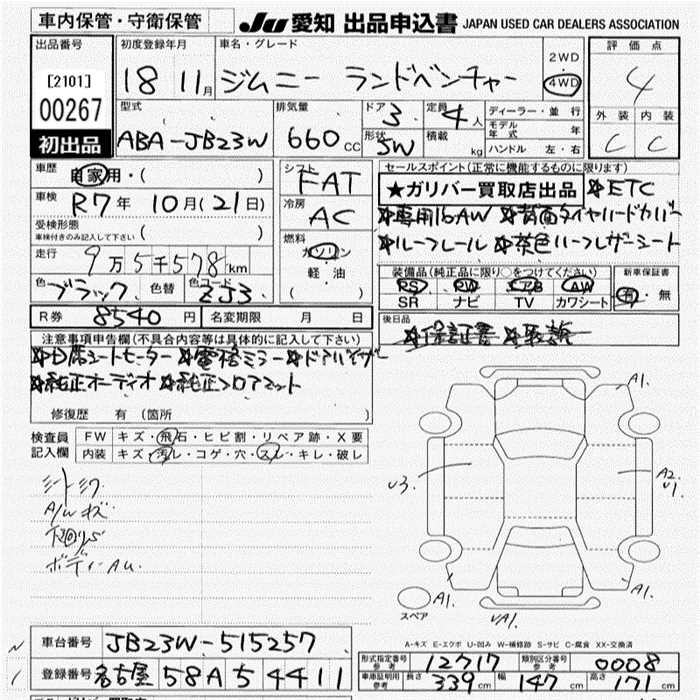 車内保管・守衛保管
JU 愛知 出品申込書 JAPAN USED CAR DEALERS ASSOCIATION
出品番号
[2101]
00267
初出品
初度登録年月
18 11月
車名・グレード
ジムニー ランドベンチャー
2WD
4WD
評価点
4
外装 内装
C C
型式
ABA-JB23W
排気量
660cc
ドア 3
形状 SW
定員 4人
積載 kg
ディーラー・並行
モデル年式 年
ハンドル 左・右
車歴
自家用・( )
車検
R7年 10月(21日)
受検形態
車検付きのみ記入して下さい ( )
走行
9万5千578km
色 ブラック 色替 色コード ZJ3
シフト
FAT
冷房
AC
燃料
ガソリン
軽油
R券 8540円 名変期限 月 日
セールスポイント(正常に機能するものに限ります)
★ガリバー買取店出品 ★ETC
★専用16AW ★背面タイヤハードカバー
★ルーフレール ★茶色ハーフレザーシート
装備品(純正品に限り○をつけてください)
PS PW エアB AW
SR ナビ TV カワシート
新車保証書
有・無
後日品
★保証書 ★取説
注意事項申告欄(不具合内容等は具体的に記入して下さい)
★D席シートヒーター ★電格ミラー ★ドアバイザー
★純正オーディオ ★純正フロアマット
修復歴 有(箇所 )
検査員記入欄
FW キズ・飛石・ヒビ割・リペア跡・X要
内装 キズ・汚レ・コゲ・穴・スレ・キレ・破レ
シートシワ
A/Wキズ
下回りS
ボディーAU.
A1.
U3
A2
U1.
A1.
A1.
UA1.
スペア
A-キズ E-エクボ U-凹み W-補修跡 S-サビ C-腐食 XX-交換済
車台番号 JB23W-515257
登録番号 名古屋 58A う 4411
形式指定番号 参考 12717
類別区分番号 参考 0008
車庫証明用 参考 長さ 339cm 幅 147cm 高さ 171cm